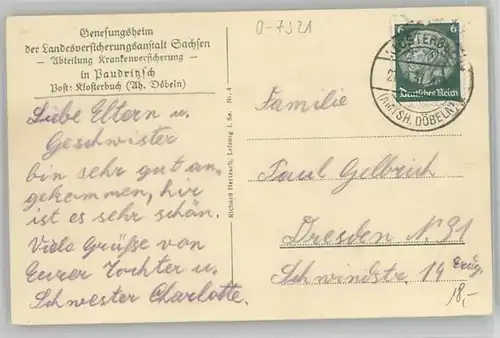 Genesungsheim
der Landesversicherungsanstalt Sachsen
– Abteilung Krankenversicherung –
in Paudritzsch
Post: Klosterbuch (Ah. Döbeln)
Liebe Eltern u.
Geschwister
bin sehr gut an-
gekommen, hir
ist es sehr schön.
Viele Grüße von
Eurer Tochter u.
Schwester Charlotte.
Richard Herlzsch, Leisnig i. Sa. Nr. 4
0-7321
6 6
Deutsches Reich
KLOSTERBUCH
(AMTSH. DÖBELN)
Familie
Paul Gelbrich
Dresden N 31
Schwindstr. 14 Erdg.
18,-